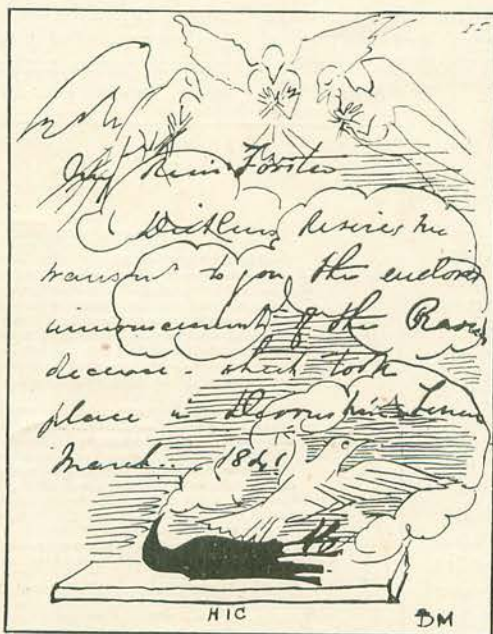 My dear Forster
Dickens desires me
transmit to you the enclosed
announcement of the Ravens
decease - which took
place in Devonshire Terrace
March... 1841
HIC
DM